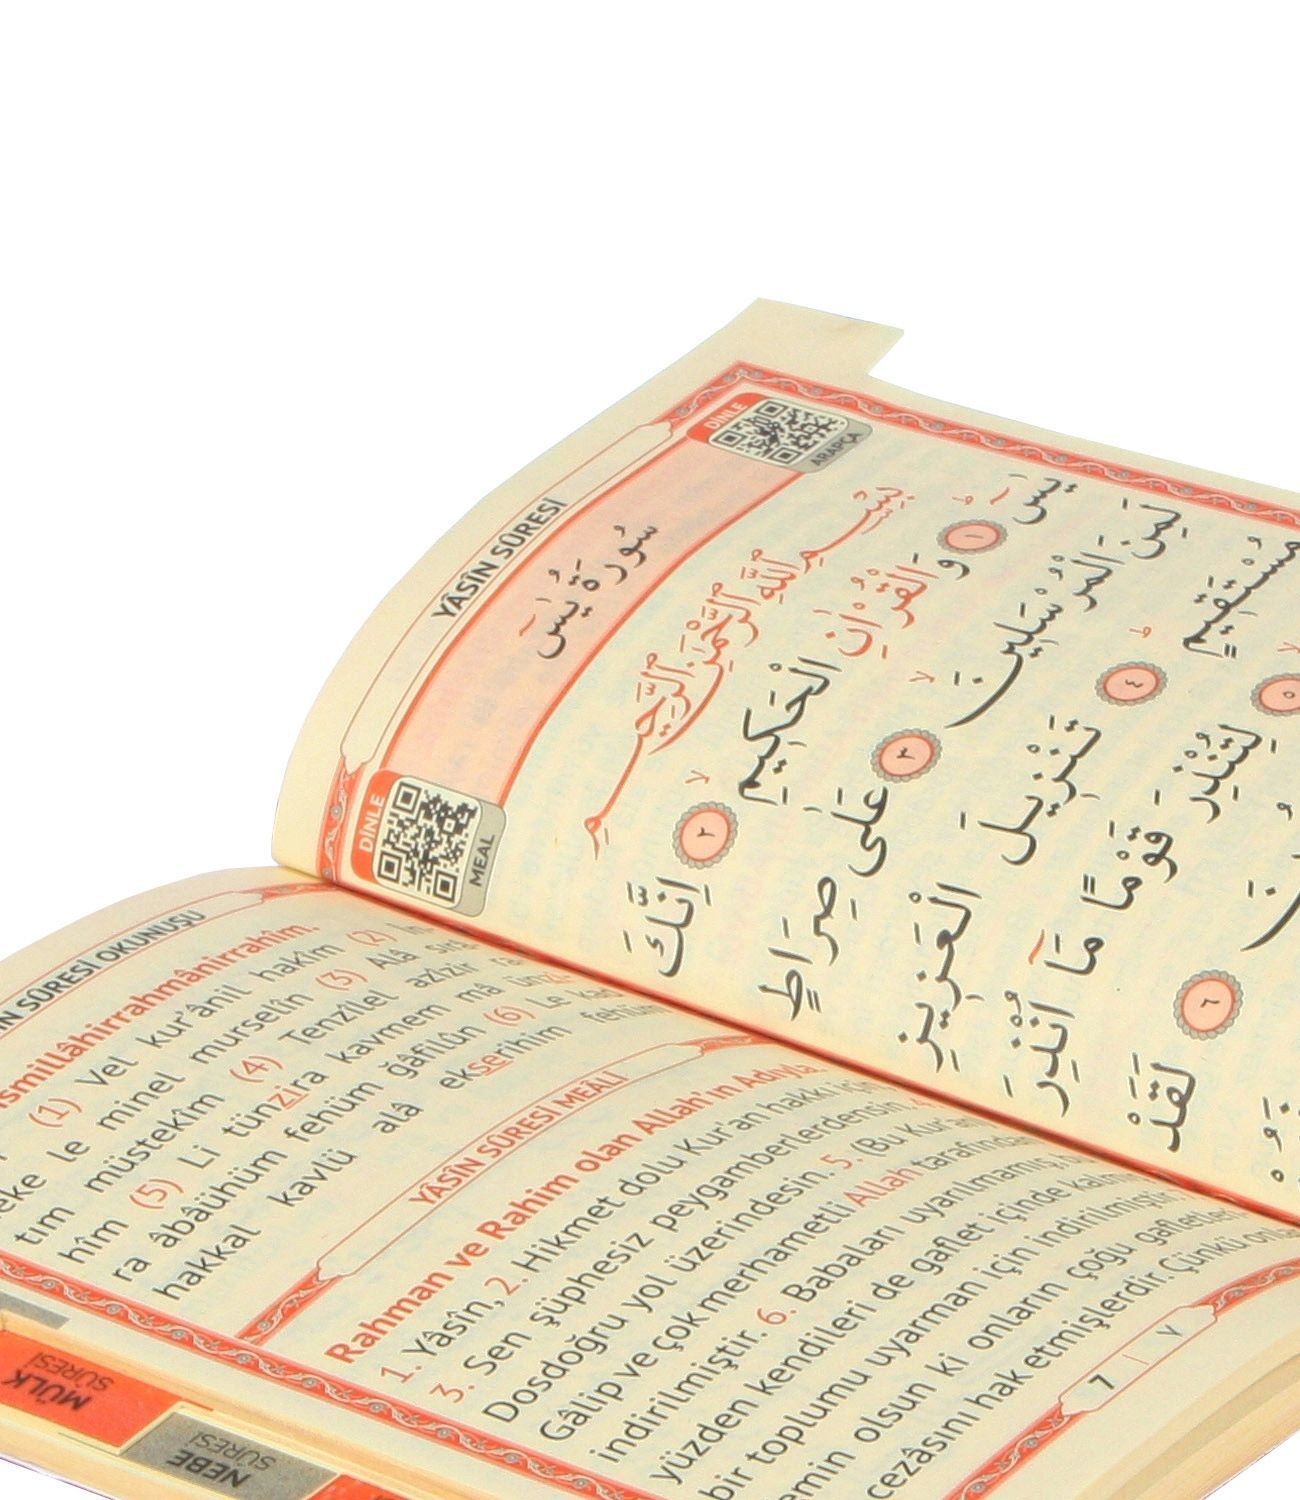 YÂSÎN SÛRESİ
DİNLE
ARAPÇA
سُورَةُ يٰسٓ
DİNLE
MEAL
بِسْمِ اللّٰهِ الرَّحْمٰنِ الرَّحِيمِ
يٰسٓ ۜ ﴿١﴾ وَالْقُرْاٰنِ الْحَكِيمِ ۙ ﴿٢﴾ اِنَّكَ
لَمِنَ الْمُرْسَلِينَ ۙ ﴿٣﴾ عَلٰى صِرَاطٍ
مُسْتَقِيمٍ ۜ ﴿٤﴾ تَنْزِيلَ الْعَزِيزِ
ۙ ﴿٥﴾ لِتُنْذِرَ قَوْمًا مَٓا اُنْذِرَ
﴿٦﴾ لَقَدْ
SÛRESİ OKUNUŞU
(1) Vel kur'ânil hakîm (2) İn
le minel murselîn (3) Alâ sırâ
tım müstekîm (4) Tenzîlel azîzir ra
hîm (5) Li tünzira kavmem mâ ün
ra âbâühüm fehüm ğâfilûn (6) Le kad
hakkal kavlü alâ ekserihim fehüm
YÂSÎN SÛRESİ MEÂLİ
Rahman ve Rahim olan Allah'ın Adıyla.
1. Yâsîn, 2. Hikmet dolu Kur'an hakkı için
3. Sen şüphesiz peygamberlerdensin.
Dosdoğru yol üzerindesin. 5. (Bu Kur'an
Gâlip ve çok merhametli Allah tarafından
indirilmiştir. 6. Babaları uyarılmamış,
yüzden kendileri de gaflet içinde
bir toplumu uyarman için indirilmiştir.
olsun ki onların çoğu gafletleri
cezâsını hak etmişlerdir. Çünkü
7 | ٧
MÜLK
SÛRESİ
NEBE
SÛRESİ